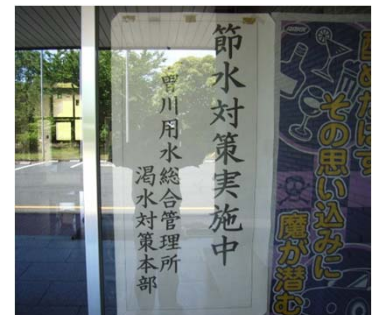 節水対策実施中
曽川用水総合管理所
渇水対策本部
その思い込みに
魔が潜む